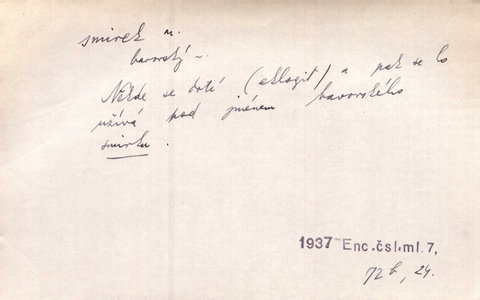 smirek m.
bavorský ~.
Někde se drtí (eklogit) a pak se ho
užívá pod jménem bavorského
smirku.
1937 Enc.čsl.ml.7,
72b, 24.